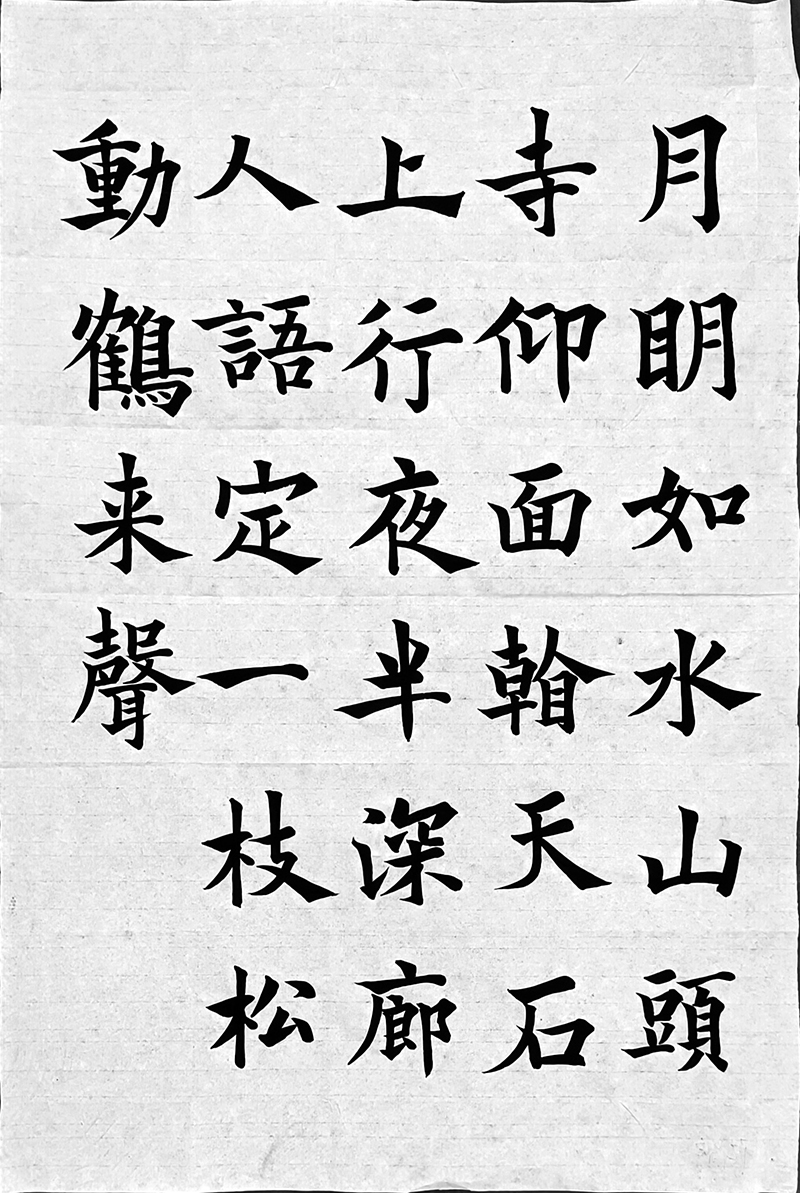 月眀如水山頭
寺仰面天石
上行夜半深廊
人語定一枝松
動鶴来聲